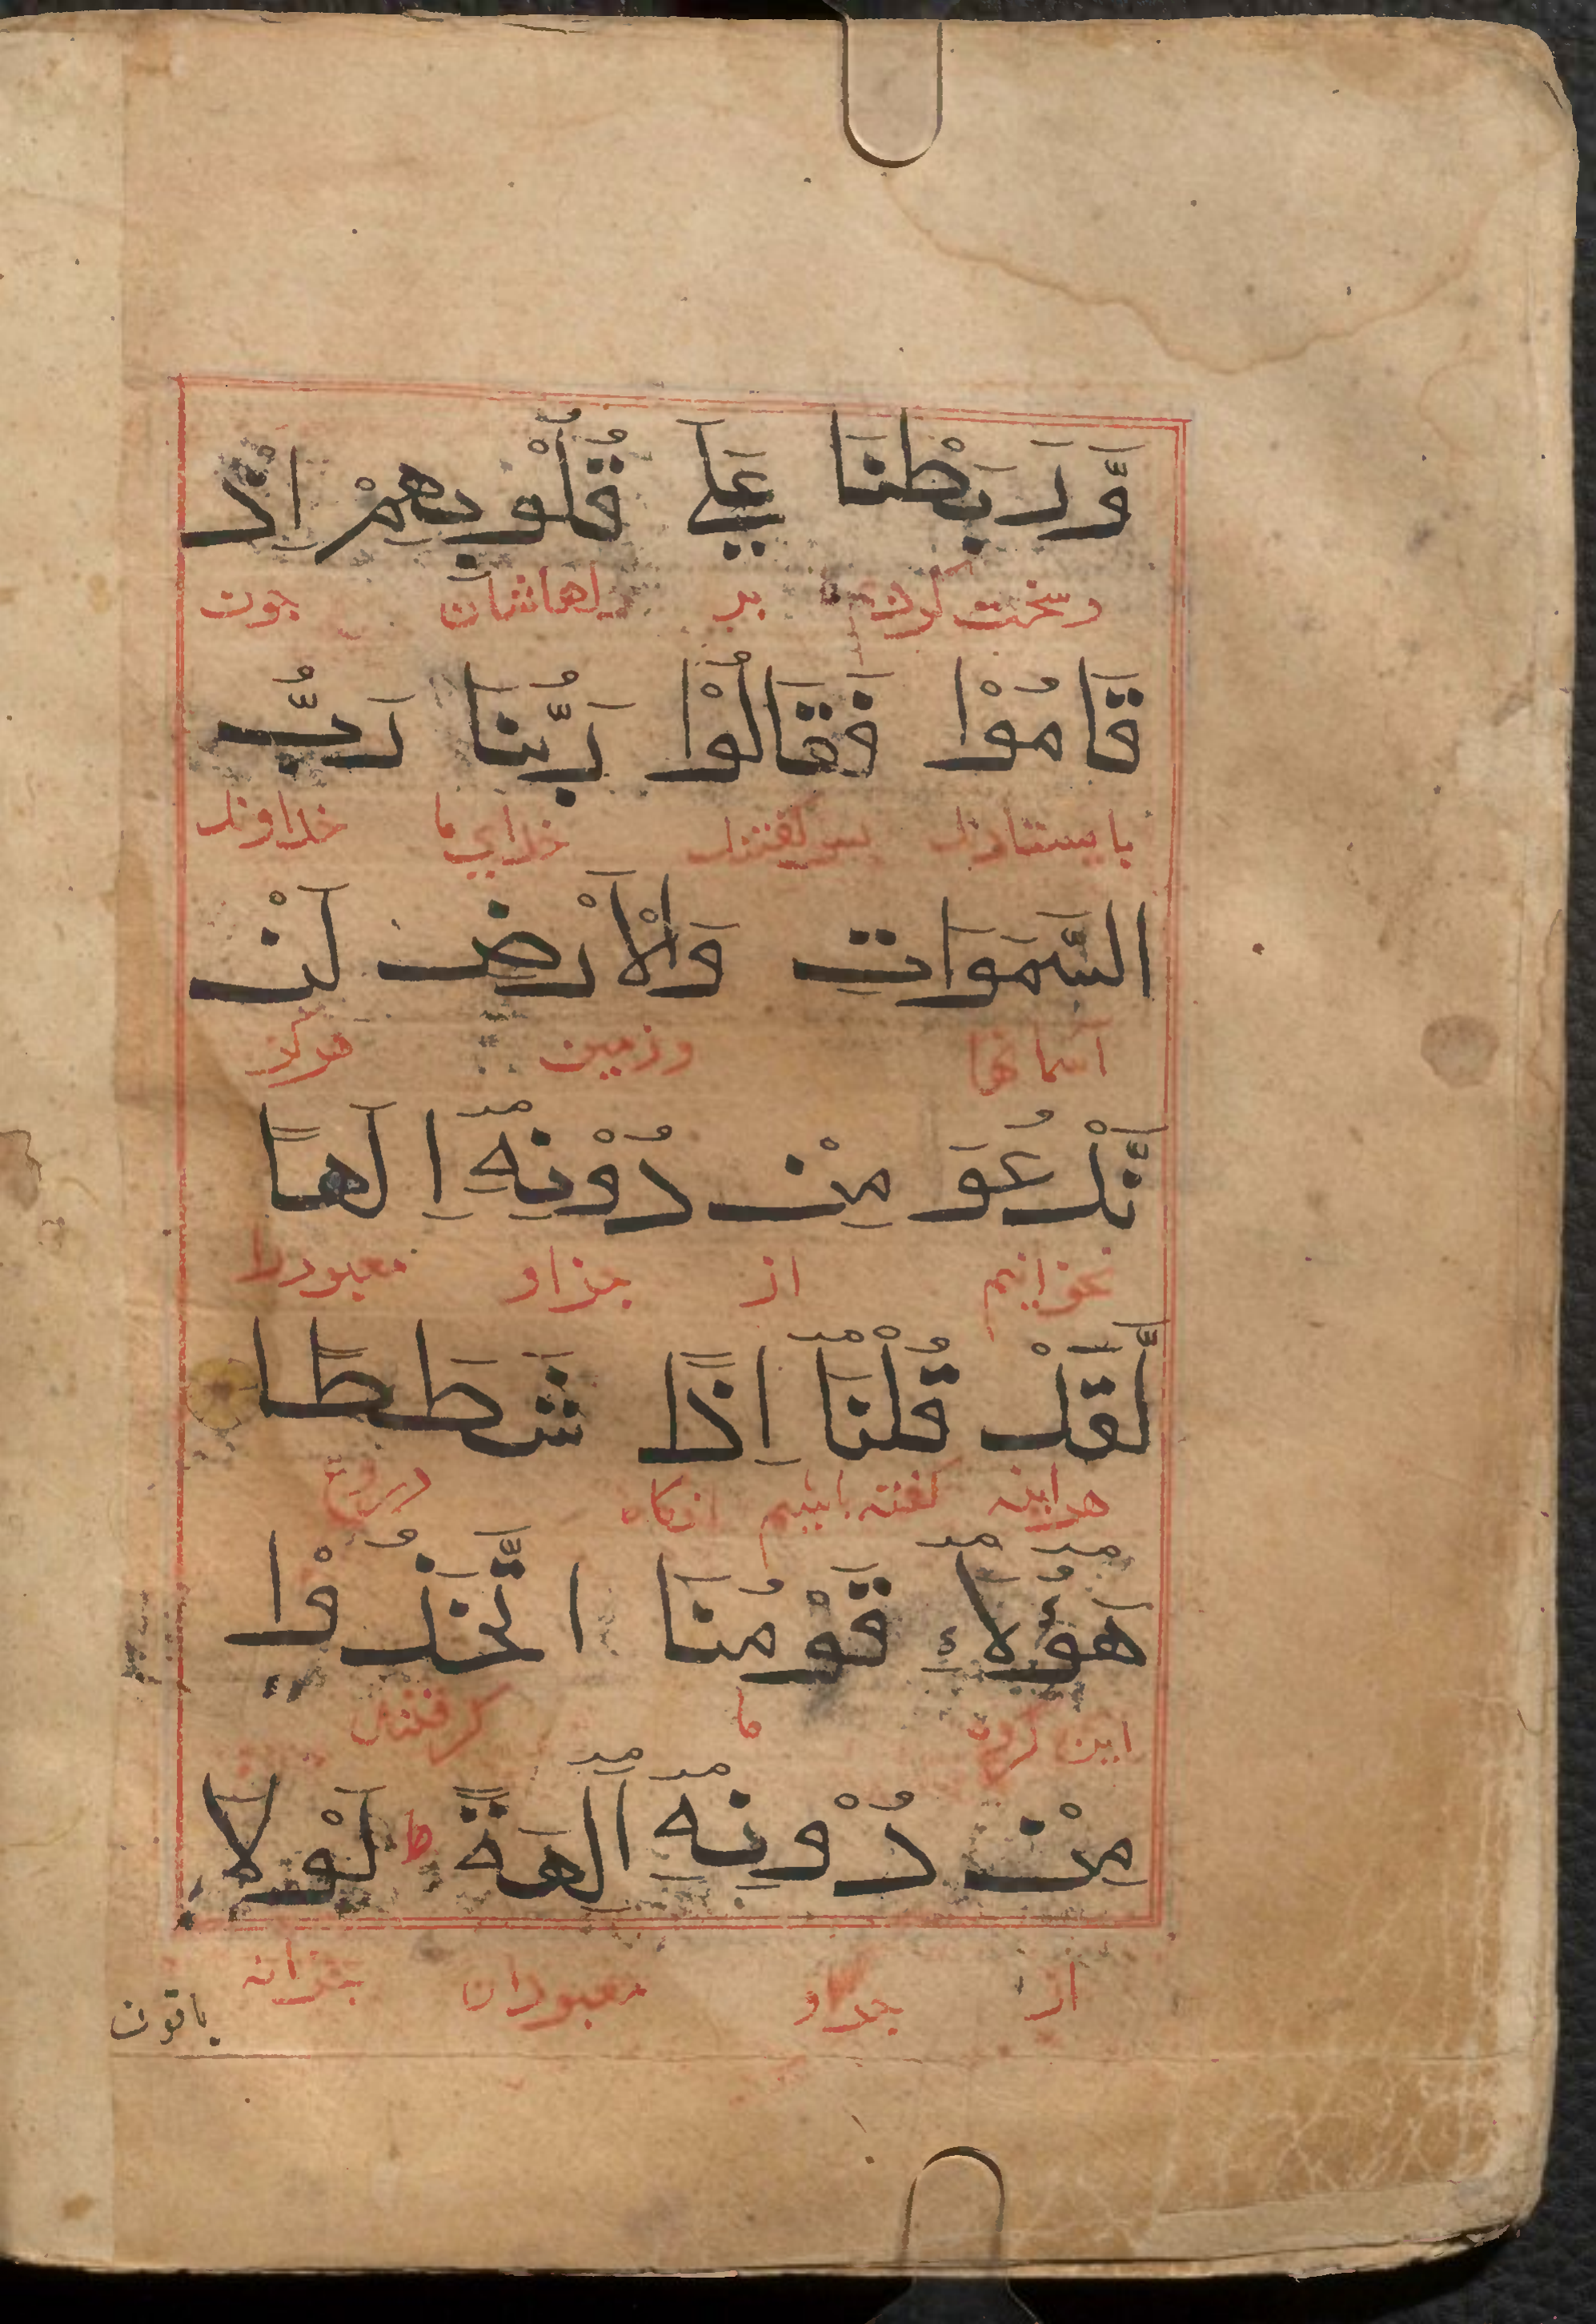 وَّرَبَطْنَا عَلٰى قُلُوْبِهِمْ اِذْ
وسخت کردیم بر دلهاشان چون
قَامُوْا فَقَالُوْا رَبُّنَا رَبُّ
بایستادند پس گفتند خدای ما خداوند
السَّمَوَاتِ وَالْاَرْضِ لَنْ
آسمانها وزمین هرگز
نَّدْعُوَ مِنْ دُوْنِهٖٓ اِلَهًا
نخوانیم از جز او معبودرا
لَّقَدْ قُلْنَآ اِذًا شَطَطًا
هراینه گفته باشیم انگاه دروغ
هٰٓؤُلَآءِ قَوْمُنَا اتَّخَذُوْا
این گروه ما گرفتند
مِنْ دُوْنِهٖٓ آلِهَةً ط لَوْلَا
از جز او معبودان چرانه
یاتون